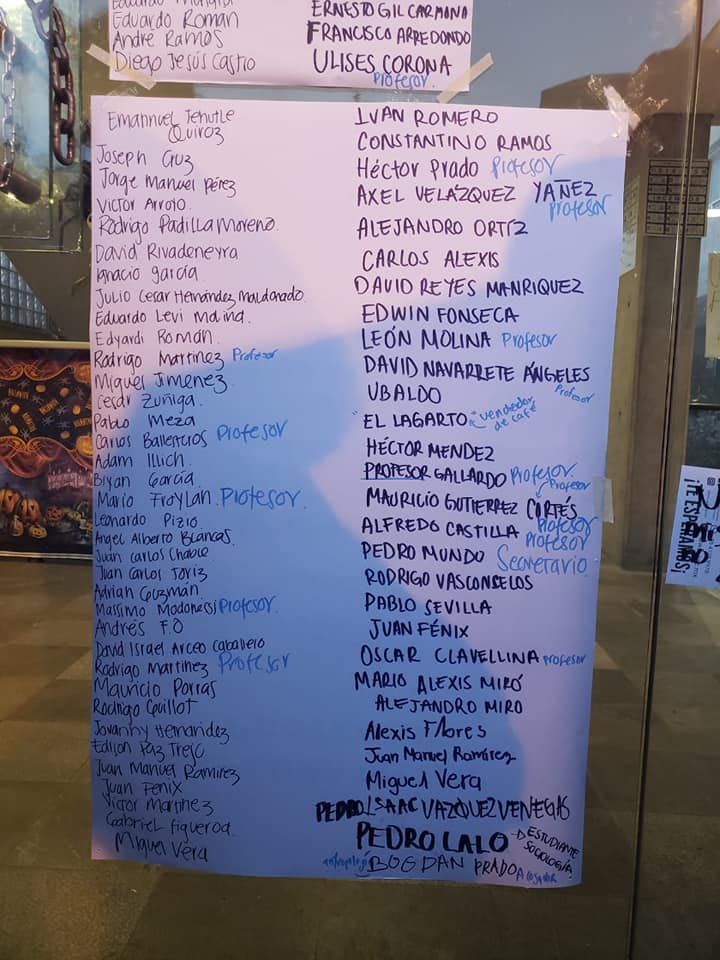 Eduardo Roman
Andre Ramos
Diego Jesús Castro
ERNESTO GIL CARMONA
FRANCISCO ARREDONDO
ULISES CORONA
Profesor.
Emannuel Tehutle
Quiroz
Joseph Cruz
Jorge Manuel Pérez
Victor Arroyo.
Rodrigo Padilla Moreno.
David Rivadeneyra
Ignacio garcía
Julio Cesar Hernández Maldonado.
Eduardo Levi Molina.
Edyardi Román.
Rodrigo Martínez Profesor
Miguel Jimenez.
Cesar Zuñiga.
Pablo Meza
Carlos Ballesteros Profesor
Adam Illich.
Bryan García.
Mario Froylan. Profesor.
Leonardo Pizio.
Angel Alberto Blancas.
Juan Carlos
Juan Carlos
Adrian Guzmán.
Massimo Modonessi Profesor.
Andrés F.O
David Israel Arceo Caballero
Rodrigo Martinez Profesor
Mauricio Porras
Rodrigo Guillot
Jovanny Hernandez
Edison Paz Trejo
Juan Manuel Ramirez
Juan Fenix
Victor Martinez
Gabriel Figueroa.
Miguel Vera
IVAN ROMERO
CONSTANTINO RAMOS
Héctor Prado Profesor
AXEL VELÁZQUEZ YAÑEZ
Profesor
ALEJANDRO ORTÍZ
CARLOS ALEXIS
DAVID REYES MANRIQUEZ
EDWIN FONSECA
LEÓN MOLINA Profesor
DAVID NAVARRETE ÁNGELES
Profesor
UBALDO
"EL LAGARTO" vendedor
de café
HÉCTOR MENDEZ
PROFESOR GALLARDO Profesor
Profesor
MAURICIO GUTIERREZ CORTÉS
Profesor
ALFREDO CASTILLA Profesor
PEDRO MUNDO Secretario.
RODRIGO VASCONSELOS
PABLO SEVILLA
JUAN FÉNIX
OSCAR CLAVELLINA Profesor
MARIO ALEXIS MIRÓ
ALEJANDRO MIRO
Alexis Flores
Juan Manuel Ramírez
Miguel Vera
PEDRO ISAAC VAZQUEZ VENEGAS
PEDRO LALO → ESTUDIANTE
SOCIOLOGÍA
BOGDAN PRADO Acosador
¡TE ESPERAMOS!